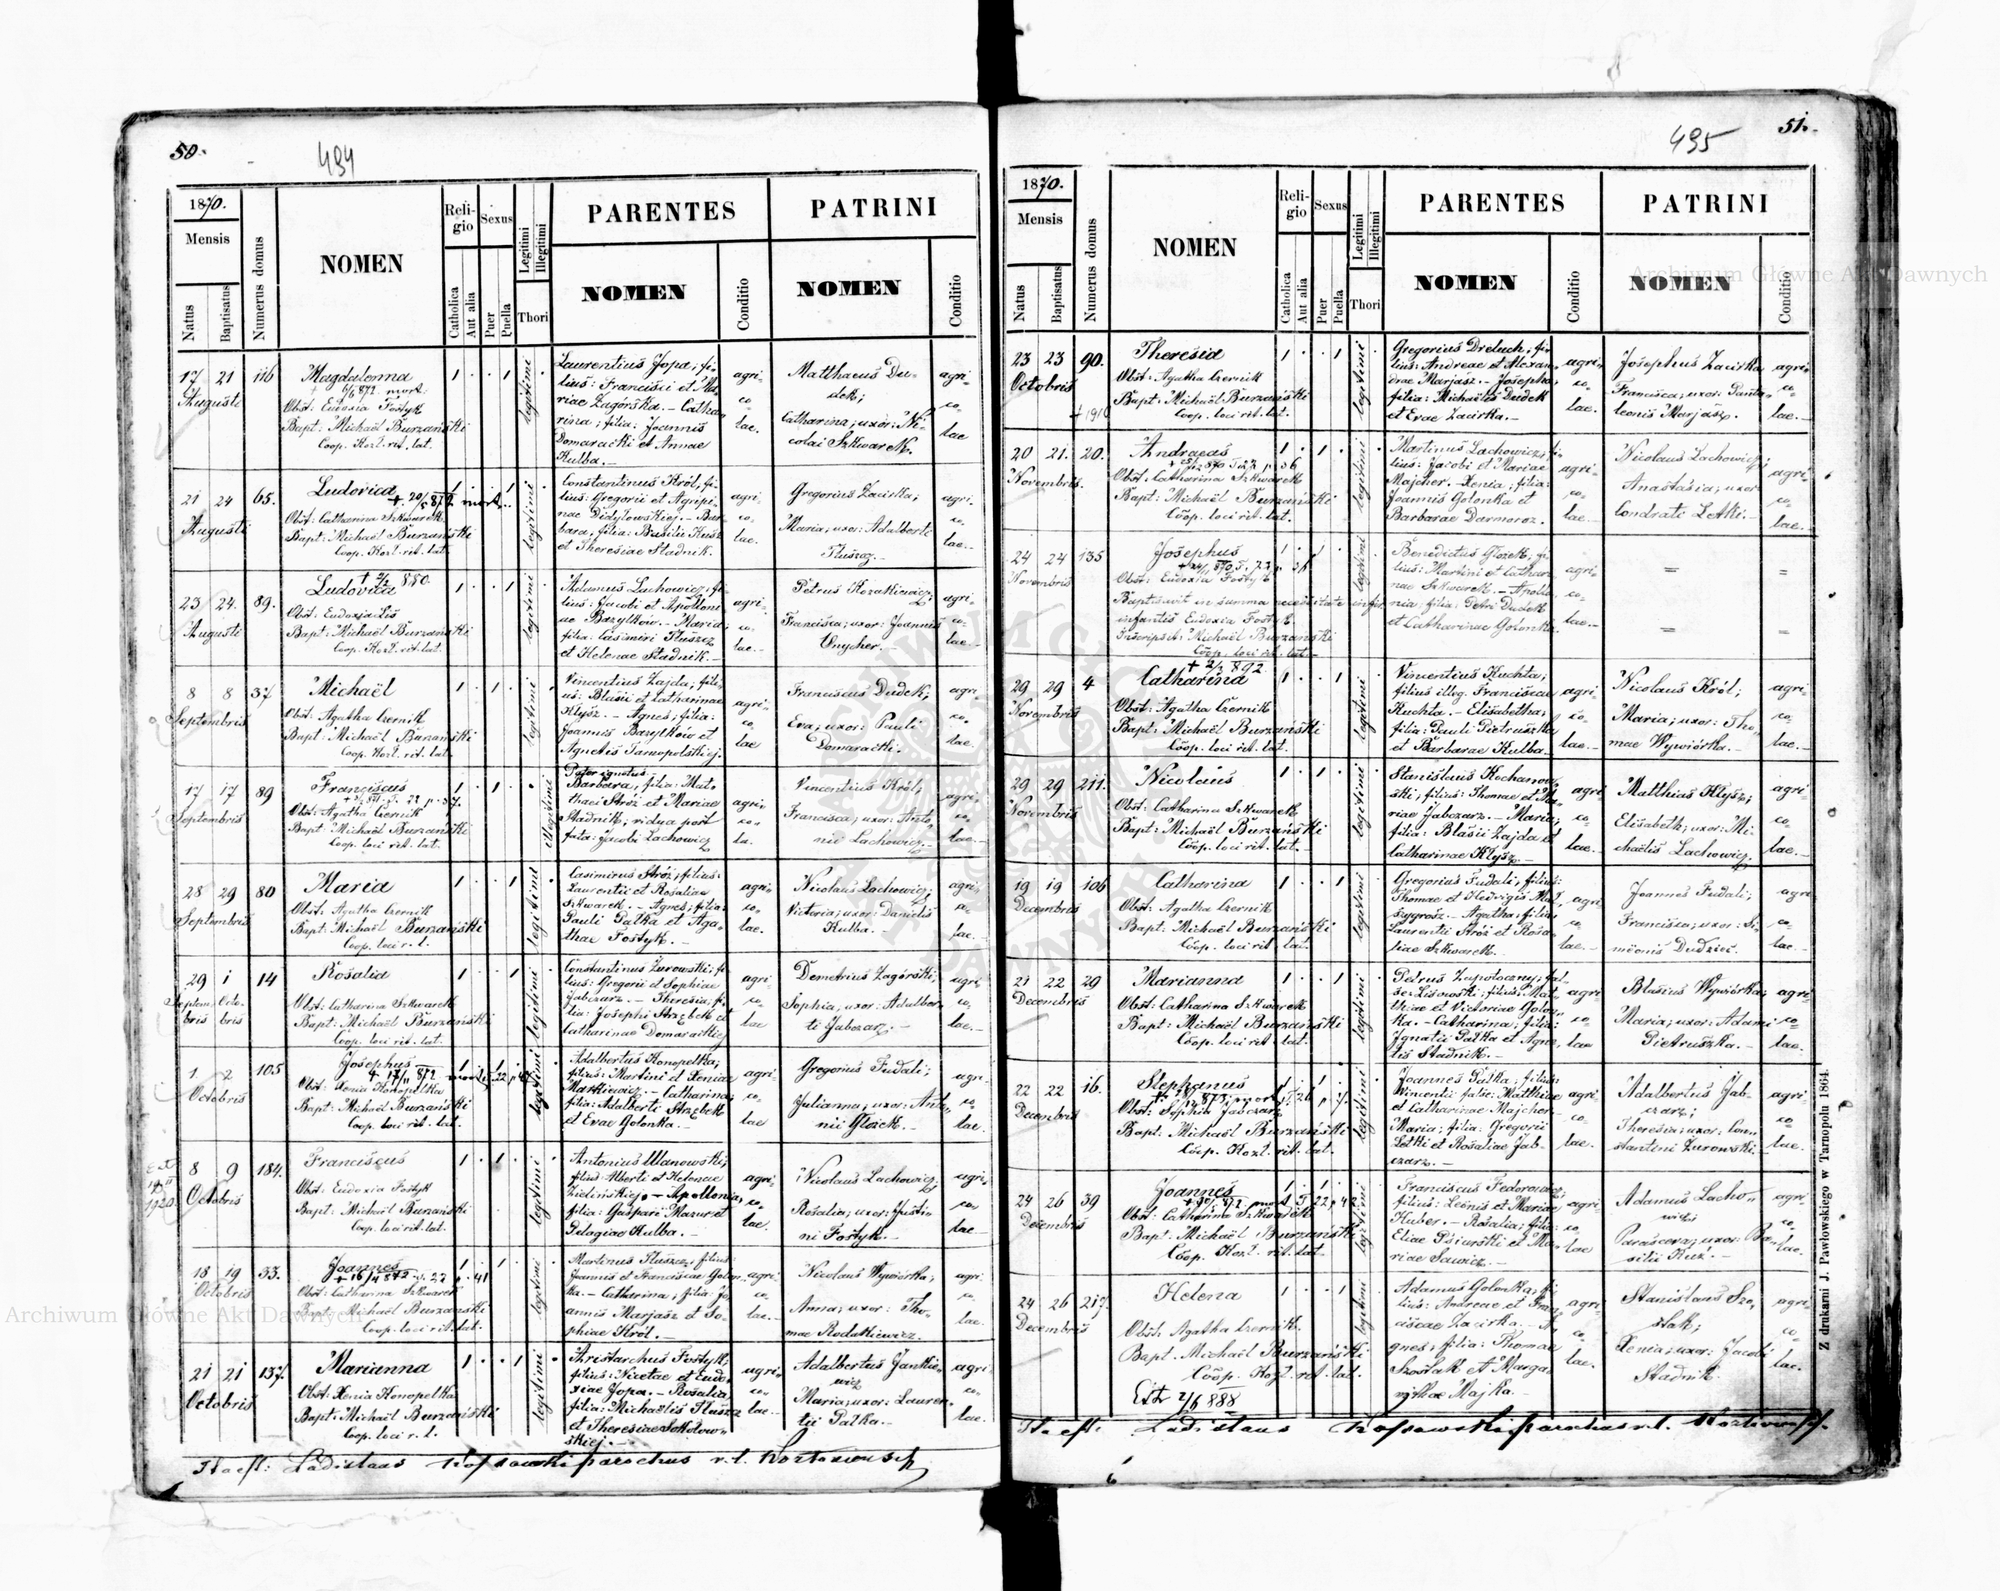 50.
494
1870.
Mensis
Natus
Baptisatus
Numerus domus
NOMEN
Religio
Catholica
Aut alia
Sexus
Puer
Puella
Legitimi
Illegitimi
Thori
PARENTES
NOMEN
Conditio
PATRINI
NOMEN
Conditio
17 21 116
Augusti
Magdalenna
Obst: Eudoxia Fostyk
Bapt: Michaël Burzański
Coop. Kozl. rit. lat.
legitimi
Laurentius Jopa; fi-
lius: Francisci et Ma-
riae Zagórska. - Catha-
rina; filia: Joannis
Domaracki et Annae
Kulba. -
agri-
co-
lae.
Matthaeus Du-
dek;
Catharina; uxor: Ni-
colai Szkwarek.
agri-
co-
lae
21 24 65.
Augusti
Ludovica
Obst: Catharina Szkwarek
Bapt: Michaël Burzański
Coop. Kozl. rit. lat.
legitimi
Constantinus Król; fi-
lius: Gregorii et Agripi-
nae Didyłowskiej. - Bar-
bara; filia: Basilii Kusz
et Theresiae Stadnik.
agri-
co-
lae.
Gregorius Zacirka;
Maria; uxor: Adalberti
Tłuszcz. -
agri-
co-
lae. -
23 24. 89.
Augusti
Ludovica
Obst: Eudoxia Lis
Bapt: Michaël Burzański
Coop. Kozl. rit. lat.
legitimi
Adamus Lachowicz; fi-
lius: Jacobi et Apolloni-
ae Bazylkow. - Maria;
filia: Casimiri Tłuszcz
et Helenae Stadnik. -
agri-
co-
lae. -
Petrus Kozakiewicz;
Francisca; uxor: Joannis
Onycher. -
agri-
co-
lae. -
8 8 37
Septembris
Michaël
Obst: Agatha Czernik
Bapt: Michaël Burzański
Coop. Kozl. rit. lat.
legitimi
Vincentius Zajda; fili-
us: Blasii et Catharinae
Kłysz. - Agnes; filia:
Joannis Bazylkow et
Agnetis Tarnopolskiej.
agri-
co-
lae
Franciscus Dudek;
Eva; uxor: Pauli
Domaracki.
agri-
co-
lae.
17 17 89
Septembris
Franciscus
Obst: Agatha Czernik
Bapt: Michaël Burzański
Coop. loci rit. lat.
illegitimi
Pater ignotus
Barbara; filia: Mat-
thaei Stróż et Mariae
Stadnik; vidua post
fata: Jacobi Lachowicz
agri-
co-
la.
Vincentius Król;
Francisca; uxor: Anto-
nii Lachowicz. -
agri-
co-
lae. -
28 29 80
Septembris
Maria
Obst: Agatha Czernik
Bapt: Michaël Burzański
Coop. loci r. l.
legitimi
Casimirus Stróż; filius:
Laurentii et Rosaliae
Szkwarek. - Agnes; filia:
Pauli Patka et Aga-
thae Fostyk. -
agri-
co-
lae.
Nicolaus Lachowicz;
Victoria; uxor: Danielis
Kulba. -
agri-
co-
lae.
29 1 14
Septem- Octo-
bris bris
Rosalia
Obst: Catharina Szkwarek
Bapt: Michaël Burzański
Coop. loci rit. lat.
legitimi
Constantinus Żurowski; fi-
lius: Gregorii et Sophiae
Jabczarz. - Theresia; fi-
lia: Josephi Strzębek et
Catharinae Domarackiej
agri-
co-
lae
Demetrius Zagórski;
Sophia; uxor: Adalber-
ti Jabczarz. -
agri-
co-
lae. -
1 2 105
Octobris
Josephus
Obst: Xenia Konopelka
Bapt: Michaël Burzański
Coop. loci rit. lat.
legitimi
Adalbertus Konopelka;
filius: Martini et Xeniae
Markiewicz. - Catharina;
filia: Adalberti Strzębek
et Evae Golonka. -
agri-
co-
lae
Gregorius Fudali;
Julianna; uxor: Anto-
nii Głożek. -
agri-
co-
lae.
8 9 184.
Octobris
Franciscus
Obst: Eudoxia Fostyk
Bapt: Michaël Burzański
Coop. loci rit. lat.
legitimi
Antonius Ulanowski;
filius: Alberti et Helenae
Zielińskiej. - Apollonia;
filia: Gaspari Mazur et
Pelagiae Kulba. -
agri-
co-
lae.
Nicolaus Lachowicz;
Rosalia; uxor: Justi-
ni Fostyk. -
agri-
co-
lae
18 19 33.
Octobris
Joannes
Obst: Catharina Szkwarek
Bapt: Michaël Burzański
Coop. loci rit. lat.
legitimi
Martinus Tłuszcz; filius:
Joannis et Franciscae Golon-
ka. - Catharina; filia: Jo-
annis Marjasz et So-
phiae Król. -
agri-
co-
lae. -
Nicolaus Wywiórka;
Anna; uxor: Tho-
mae Rudakiewicz.
agri-
co-
lae.
21 21 137.
Octobris
Marianna
Obst: Xenia Konopelka
Bapt: Michaël Burzański
Coop. loci r. l.
legitimi
Aristarchus Fostyk;
filius: Nicetae et Eudo-
xiae Jopa. - Rosalia;
filia: Michaëlis Tłuszcz
et Theresiae Sokołow-
skiej. -
agri-
co-
lae.
Adalbertus Jankie-
wicz
Maria; uxor: Lauren-
tii Patka. -
agri-
co-
lae.
Ita est: Ladislaus Kossowski parochus r. l.
51.
495
1870.
Mensis
Natus
Baptisatus
Numerus domus
NOMEN
Religio
Catholica
Aut alia
Sexus
Puer
Puella
Legitimi
Illegitimi
Thori
PARENTES
NOMEN
Conditio
PATRINI
NOMEN
Conditio
23 23 90.
Octobris
Theresia
Obst: Agatha Czernik
Bapt: Michaël Burzański
Coop. loci rit. lat.
legitimi
Gregorius Dreluch; fi-
lius: Andreae et Alexan-
drae Marjasz. - Josepha;
filia: Michaëlis Dudek
et Evae Zacirka. -
agri-
co-
lae.
Josephus Zacirka
Francisca; uxor: Panta-
leonis Marjasz.
agri-
co-
lae.
20 21. 20.
Novembris
Andraeas
Obst: Catharina Szkwarek
Bapt: Michaël Burzański
Coop. loci rit. lat.
legitimi
Martinus Lachowicz; fi-
lius: Jacobi et Mariae
Majcher. - Xenia; filia:
Joannis Golonka et
Barbarae Darmoroz.
agri-
co-
lae. -
Nicolaus Lachowicz;
Anastasia; uxor
Condrati Letki. -
agri-
co-
lae. -
24 24 135
Novembris
Josephus
Obst: Eudoxia Fostyk
Baptisavit in summa necessitate
infantis Eudoxia Fostyk.
Inscripsit: Michaël Burzański
Coop. loci rit. lat. -
legitimi
Benedictus Głożek; fi-
lius: Martini et Cathari-
nae Szkwarek. - Apollo-
nia; filia: Petri Dudek
et Catharinae Golonka.
agri-
co-
lae. -
29 29 4
Novembris
+ 2/2 892
Catharina
Obst: Agatha Czernik
Bapt: Michaël Burzański
Coop. loci rit. lat.
legitimi
Vincentius Kuchta;
filius illeg. Franciscae
Kuchta. - Elisabetha;
filia: Pauli Pietruszka
et Barbarae Kulba.
agri-
co-
lae. -
Nicolaus Król;
Maria; uxor: Tho-
mae Wywiórka. -
agri-
co-
lae. -
29 29 211.
Novembris
Nicolaus
Obst: Catharina Szkwarek
Bapt: Michaël Burzański
Coop. loci rit. lat.
legitimi
Stanislaus Kochanow-
ski; filius: Thomae et Ma-
riae Jabczarz. - Maria;
filia: Blasii Zajda et
Catharinae Kłysz. -
agri-
co-
lae.
Matthias Kłysz;
Elisabeth; uxor: Mi-
chaëlis Lachowicz.
agri-
co-
lae. -
19 19 106
Decembris
Catharina
Obst: Agatha Czernik
Bapt: Michaël Burzański
Coop. loci rit. lat.
legitimi
Gregorius Fudali; filius:
Thomae et Hedvigis
Agatha; filia:
Laurentii Stróż et Rosa-
liae Szkwarek.
agri-
co-
lae.
Joannes Fudali;
Francisca; uxor: Si-
meonis Dudziec.
agri-
co-
lae.
21 22 29
Decembris
Marianna
Obst: Catharina Szkwarek
Bapt: Michaël Burzański
Coop. loci rit. lat.
legitimi
Petrus Zapotoczny; fal-
se: Lisowski; filius: Mat-
thiae et Victoriae Golon-
ka. - Catharina; filia:
Ignatii Patka et Agne-
tis Stadnik. -
agri-
co-
lae
Blasius Wywiórka;
Maria; uxor: Adami
Pietruszka. -
agri-
co-
lae.
22 22 16.
Decembris
Stephanus
Obst: Sophia Jabczarz
Bapt: Michaël Burzański
Coop. Kozl. rit. lat.
legitimi
Joannes Patka; filius
Vincentii Matthiae
et Catharinae Majcher.
Maria; filia: Gregorii
Letki et Rosaliae Jab-
czarz. -
agri-
co-
lae.
Adalbertus Jab-
czarz;
Theresia; uxor: Con-
stantini Żurowski.
agri-
co-
lae.
24 26 39
Decembris
Joannes
Obst: Catharina Szkwarek
Bapt: Michaël Burzański
Coop. Kozl. rit. lat.
legitimi
Franciscus Fedorowicz;
filius: Leonis et Mariae
Huber. - Rosalia; filia:
Eliae Psiurski et Ma-
riae Sawicz. -
agri-
co-
lae
Adamus Lacho-
wicz
Parasceva; uxor: Ba-
silii Kusz. -
agri-
co-
lae.
24 26 217.
Decembris
Helena
Obst: Agatha Czernik.
Bapt. Michaël Burzański
Coop. Kozl. rit. lat.
Ext 2/6 888
legitimi
Adamus Golonka; fi-
lius: Andreae et Fran-
ciscae Zacirka. - A-
gnes; filia: Thomae
et Marga-
rithae Majka. -
agri-
co-
lae.
Stanislaus Szo-
stak;
Xenia; uxor: Jacobi
Stadnik.
agri-
co-
lae.
Ita est: Ladislaus Kossowski parochus r. l.
Z drukarni J. Pawłowskiego w Tarnopolu 1864.
Archiwum Główne Akt Dawnych
Archiwum Główne Akt Dawnych
ARCHIWUM GŁÓWNE AKT DAWNYCH